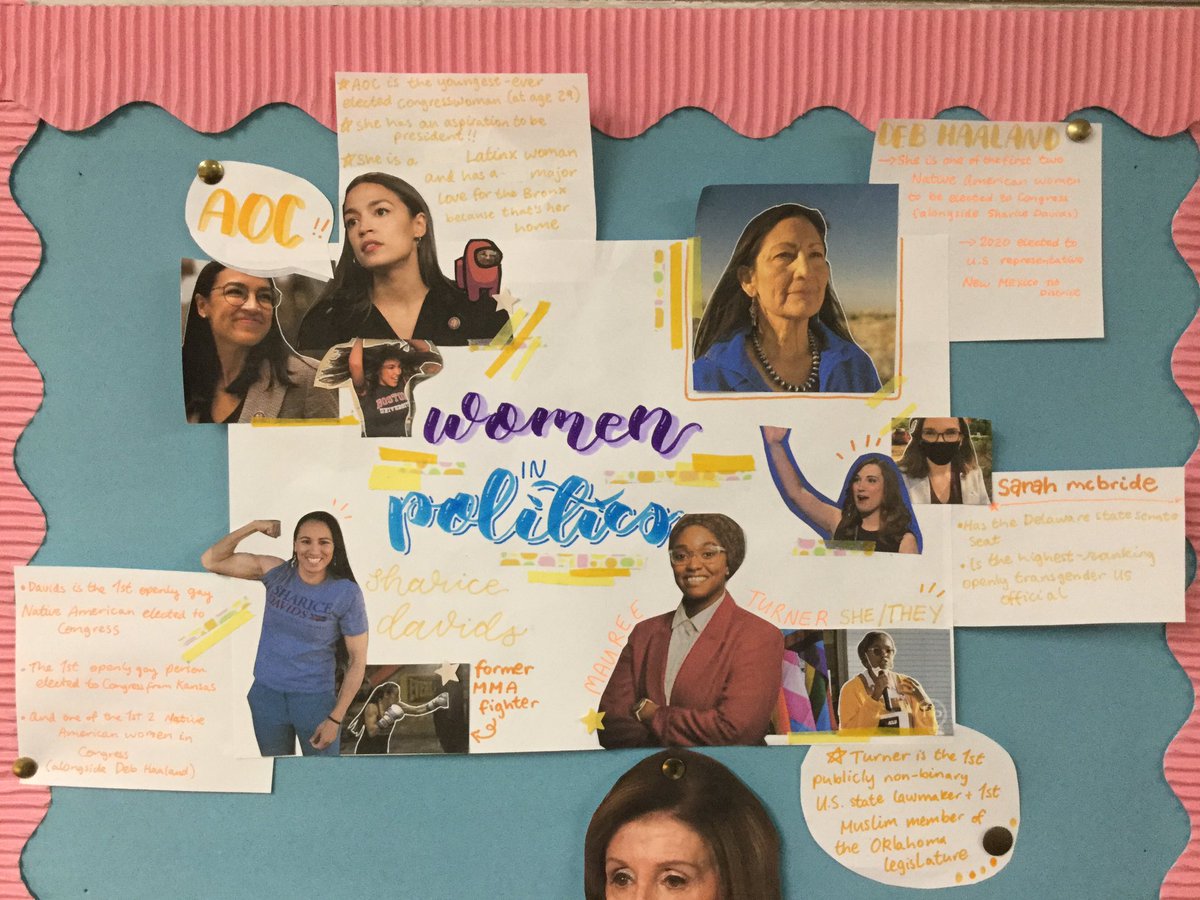 ☆ AOC is the youngest-ever
elected congresswoman (at age 29)
☆ she has an aspiration to be
president!!
☆ She is a Latinx woman
and has a major
love for the Bronx
because that's her
home
AOC!!
DEB HAALAND
→ She is one of the first two
Native American women
to be elected to Congress
(alongside Sharice Davids)
→ 2020 elected to
U.S representative
New Mexico
District
BOSTON
UNIVERSITY
women
IN
politics
sarah mcbride
• Has the Delaware state senate
seat
• Is the highest-ranking
openly transgender US
official
SHARICE
DAVIDS
sharice
davids
former
MMA
fighter
• Davids is the 1st openly gay
Native American elected to
Congress
• The 1st openly gay person
elected to Congress from Kansas
• And one of the 1st 2 Native
American women in
Congress
(alongside Deb Haaland)
MAUREE TURNER SHE/THEY
☆ Turner is the 1st
publicly non-binary
U.S. state lawmaker + 1st
Muslim member of
the Oklahoma
legislature